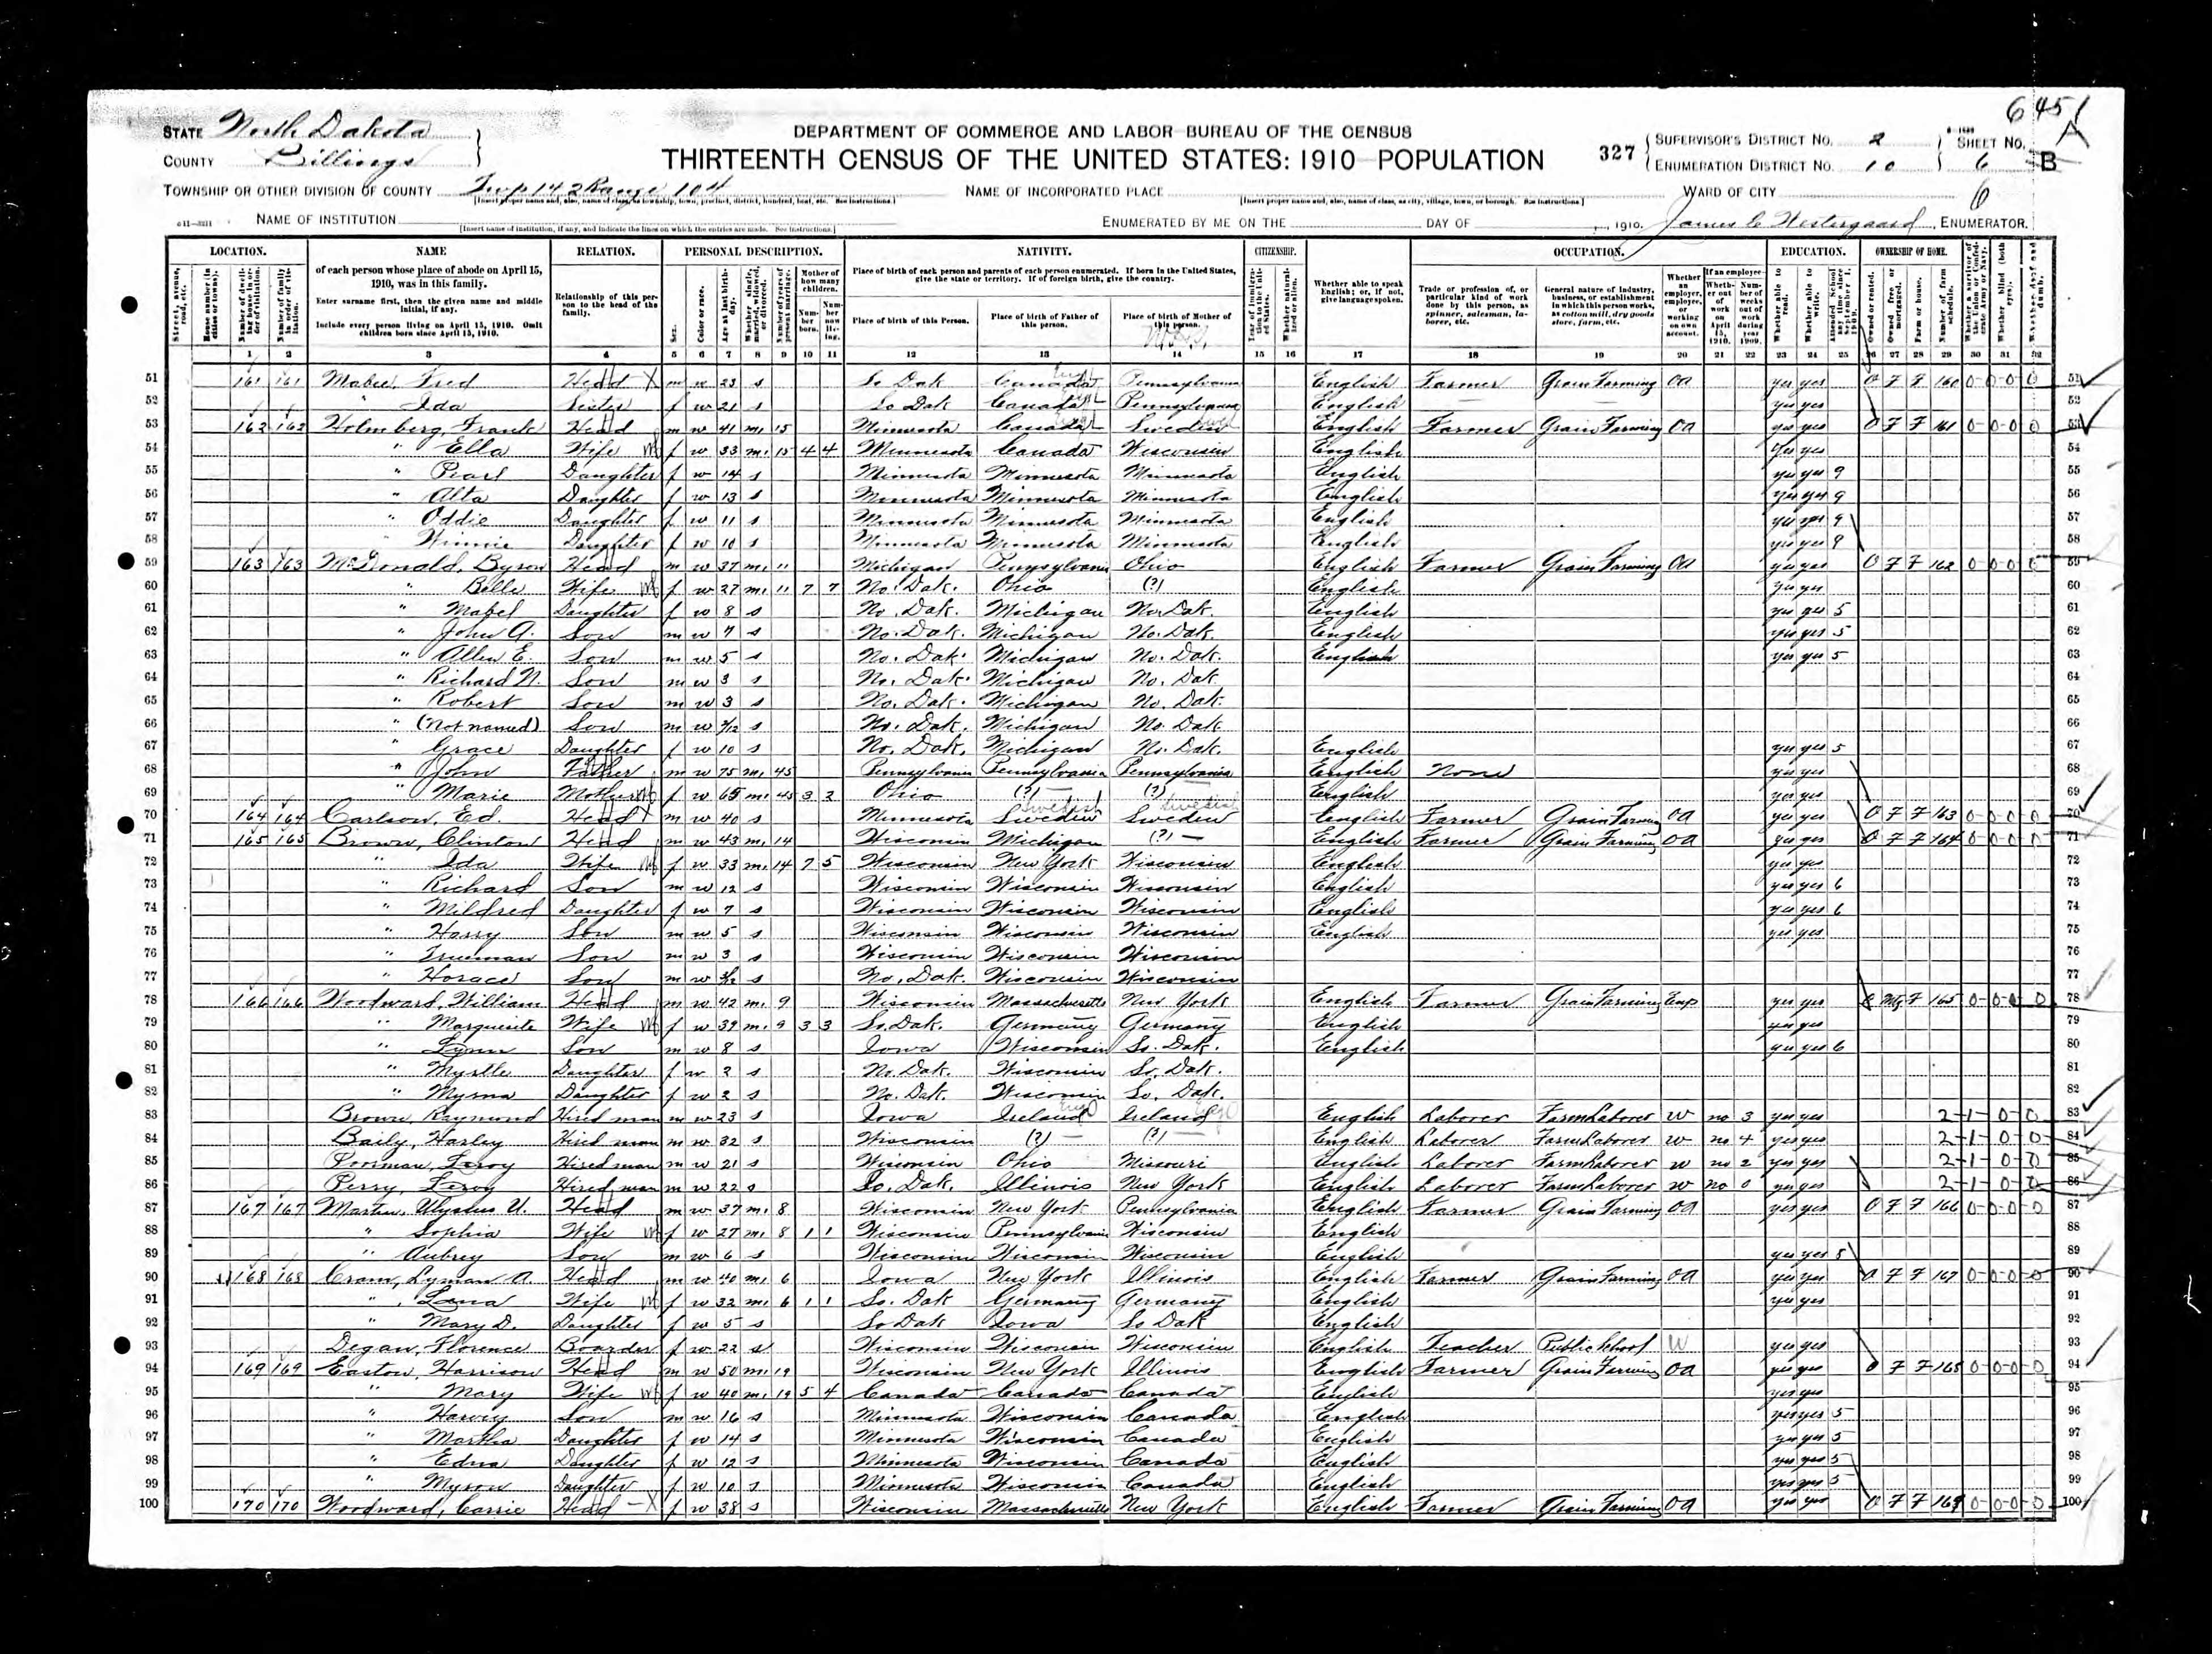 6451
A
STATE North Dakota
COUNTY Billings
TOWNSHIP OR OTHER DIVISION OF COUNTY Twp 142 Range 104
DEPARTMENT OF COMMERCE AND LABOR BUREAU OF THE CENSUS
THIRTEENTH CENSUS OF THE UNITED STATES: 1910 POPULATION
327 SUPERVISOR'S DISTRICT NO. 2 SHEET NO.
ENUMERATION DISTRICT NO. 10 6 B
NAME OF INCORPORATED PLACE
WARD OF CITY 6
NAME OF INSTITUTION
ENUMERATED BY ME ON THE DAY OF , 1910. James C Westergaard, ENUMERATOR.
LOCATION. NAME RELATION. PERSONAL DESCRIPTION. NATIVITY. CITIZENSHIP. OCCUPATION. EDUCATION. OWNERSHIP OF HOME.
of each person whose place of abode on April 15, 1910, was in this family.
Enter surname first, then the given name and middle initial, if any.
Include every person living on April 15, 1910. Omit children born since April 15, 1910.
Relationship of this person to the head of the family.
Place of birth of each person and parents of each person enumerated. If born in the United States, give the state or territory. If of foreign birth, give the country.
Place of birth of this Person. Place of birth of Father of this person. Place of birth of Mother of this person.
Whether able to speak English; or, if not, give language spoken.
1 2 3 4 5 6 7 8 9 10 11 12 13 14 15 16 17 18 19 20 21 22 23 24 25 26 27 28 29 30 31 32
51 161 161 Mabee, Fred Head m w 23 s So Dak Canada Pennsylvania English Farmer Grain Farming OA yes yes O F F 160 51
52 " Ida Sister f w 21 s So Dak Canada Pennsylvania English yes yes 52
53 162 162 Holmberg, Frank Head m w 41 m 15 Minnesota Canada Sweden English Farmer Grain Farming OA yes yes O F F 161 53
54 " Ella Wife f w 33 m 15 4 4 Minnesota Canada Wisconsin English yes yes 54
55 " Pearl Daughter f w 14 s Minnesota Minnesota Minnesota English yes yes 9 55
56 " Alta Daughter f w 13 s Minnesota Minnesota Minnesota English yes yes 9 56
57 " Oddie Daughter f w 11 s Minnesota Minnesota Minnesota English yes yes 9 57
58 " Winnie Daughter f w 10 s Minnesota Minnesota Minnesota English yes yes 9 58
59 163 163 McDonald, Byron Head m w 37 m 11 Michigan Pennsylvania Ohio English Farmer Grain Farming OA yes yes O F F 162 59
60 " Belle Wife f w 27 m 11 7 7 No. Dak. Ohio (?) English yes yes 60
61 " Mabel Daughter f w 8 s No. Dak. Michigan No. Dak. English yes yes 5 61
62 " John A. Son m w 7 s No. Dak. Michigan No. Dak. English yes yes 5 62
63 " Allen E. Son m w 5 s No. Dak. Michigan No. Dak. English yes yes 5 63
64 " Richard N. Son m w 3 s No. Dak. Michigan No. Dak. 64
65 " Robert Son m w 3 s No. Dak. Michigan No. Dak. 65
66 " (Not named) Son m w s No. Dak. Michigan No. Dak. 66
67 " Grace Daughter f w 10 s No. Dak. Michigan No. Dak. English yes yes 5 67
68 " John Father m w 75 m 45 Pennsylvania Pennsylvania Pennsylvania English None yes yes 68
69 " Marie Mother f w 65 m 45 3 2 Ohio (?) (?) English yes yes 69
70 164 164 Carlson, Ed. Head m w 40 s Minnesota Sweden Sweden English Farmer Grain Farming OA yes yes O F F 163 70
71 165 165 Brown, Clinton Head m w 43 m 14 Wisconsin Michigan (?) English Farmer Grain Farming OA yes yes O F F 164 71
72 " Ida Wife f w 33 m 14 7 5 Wisconsin New York Wisconsin English yes yes 72
73 " Richard Son m w 12 s Wisconsin Wisconsin Wisconsin English yes yes 6 73
74 " Mildred Daughter f w 7 s Wisconsin Wisconsin Wisconsin English yes yes 6 74
75 " Harry Son m w 5 s Wisconsin Wisconsin Wisconsin English yes yes 75
76 " Trueman Son m w 3 s Wisconsin Wisconsin Wisconsin 76
77 " Horace Son m w s No. Dak. Wisconsin Wisconsin 77
78 166 166 Woodward, William Head m w 42 m 9 Wisconsin Massachusetts New York English Farmer Grain Farming Emp yes yes O Mg F 165 78
79 " Marguerite Wife f w 39 m 9 3 3 So. Dak. Germany Germany English yes yes 79
80 " Lynn Son m w 8 s Iowa Wisconsin So. Dak. English yes yes 6 80
81 " Myrtle Daughter f w 2 s No. Dak. Wisconsin So. Dak. 81
82 " Myrna Daughter f w 2 s No. Dak. Wisconsin So. Dak. 82
83 Brown, Raymond Hired man m w 23 s Iowa Ireland Ireland English Laborer Farm Laborer W no 3 yes yes 2-1-0-0 83
84 Baily, Harley Hired man m w 32 s Wisconsin (?) (?) English Laborer Farm Laborer W no 4 yes yes 2-1-0-0 84
85 Poorman, Leroy Hired man m w 21 s Wisconsin Ohio Missouri English Laborer Farm Laborer W no 2 yes yes 2-1-0-0 85
86 Perry, Leroy Hired man m w 22 s So. Dak. Illinois New York English Laborer Farm Laborer W no 0 yes yes 2-1-0-0 86
87 167 167 Martin, Ulysses U. Head m w 37 m 8 Wisconsin New York Pennsylvania English Farmer Grain Farming OA yes yes O F F 166 87
88 " Sophia Wife f w 27 m 8 1 1 Wisconsin Pennsylvania Wisconsin English 88
89 " Aubrey Son m w 6 s Wisconsin Wisconsin Wisconsin English yes yes 5 89
90 168 168 Cram, Lyman A. Head m w 40 m 6 Iowa New York Illinois English Farmer Grain Farming OA yes yes O F F 167 90
91 " Lena Wife f w 32 m 6 1 1 So. Dak Germany Germany English yes yes 91
92 " Mary D. Daughter f w 5 s So Dak Iowa So Dak English 92
93 Degan, Florence Boarder f w 22 s Wisconsin Wisconsin Wisconsin English Teacher Public School W yes yes 93
94 169 169 Easton, Harrison Head m w 50 m 19 Wisconsin New York Illinois English Farmer Grain Farming OA yes yes O F F 168 94
95 " Mary Wife f w 40 m 19 5 4 Canada Canada Canada English yes yes 95
96 " Harvey Son m w 16 s Minnesota Wisconsin Canada English yes yes 5 96
97 " Martha Daughter f w 14 s Minnesota Wisconsin Canada English yes yes 5 97
98 " Edna Daughter f w 12 s Minnesota Wisconsin Canada English yes yes 5 98
99 " Myron Daughter f w 10 s Minnesota Wisconsin Canada English yes yes 5 99
100 170 170 Woodward, Carrie Head f w 38 s Wisconsin Massachusetts New York English Farmer Grain Farming OA yes yes O F F 169 100